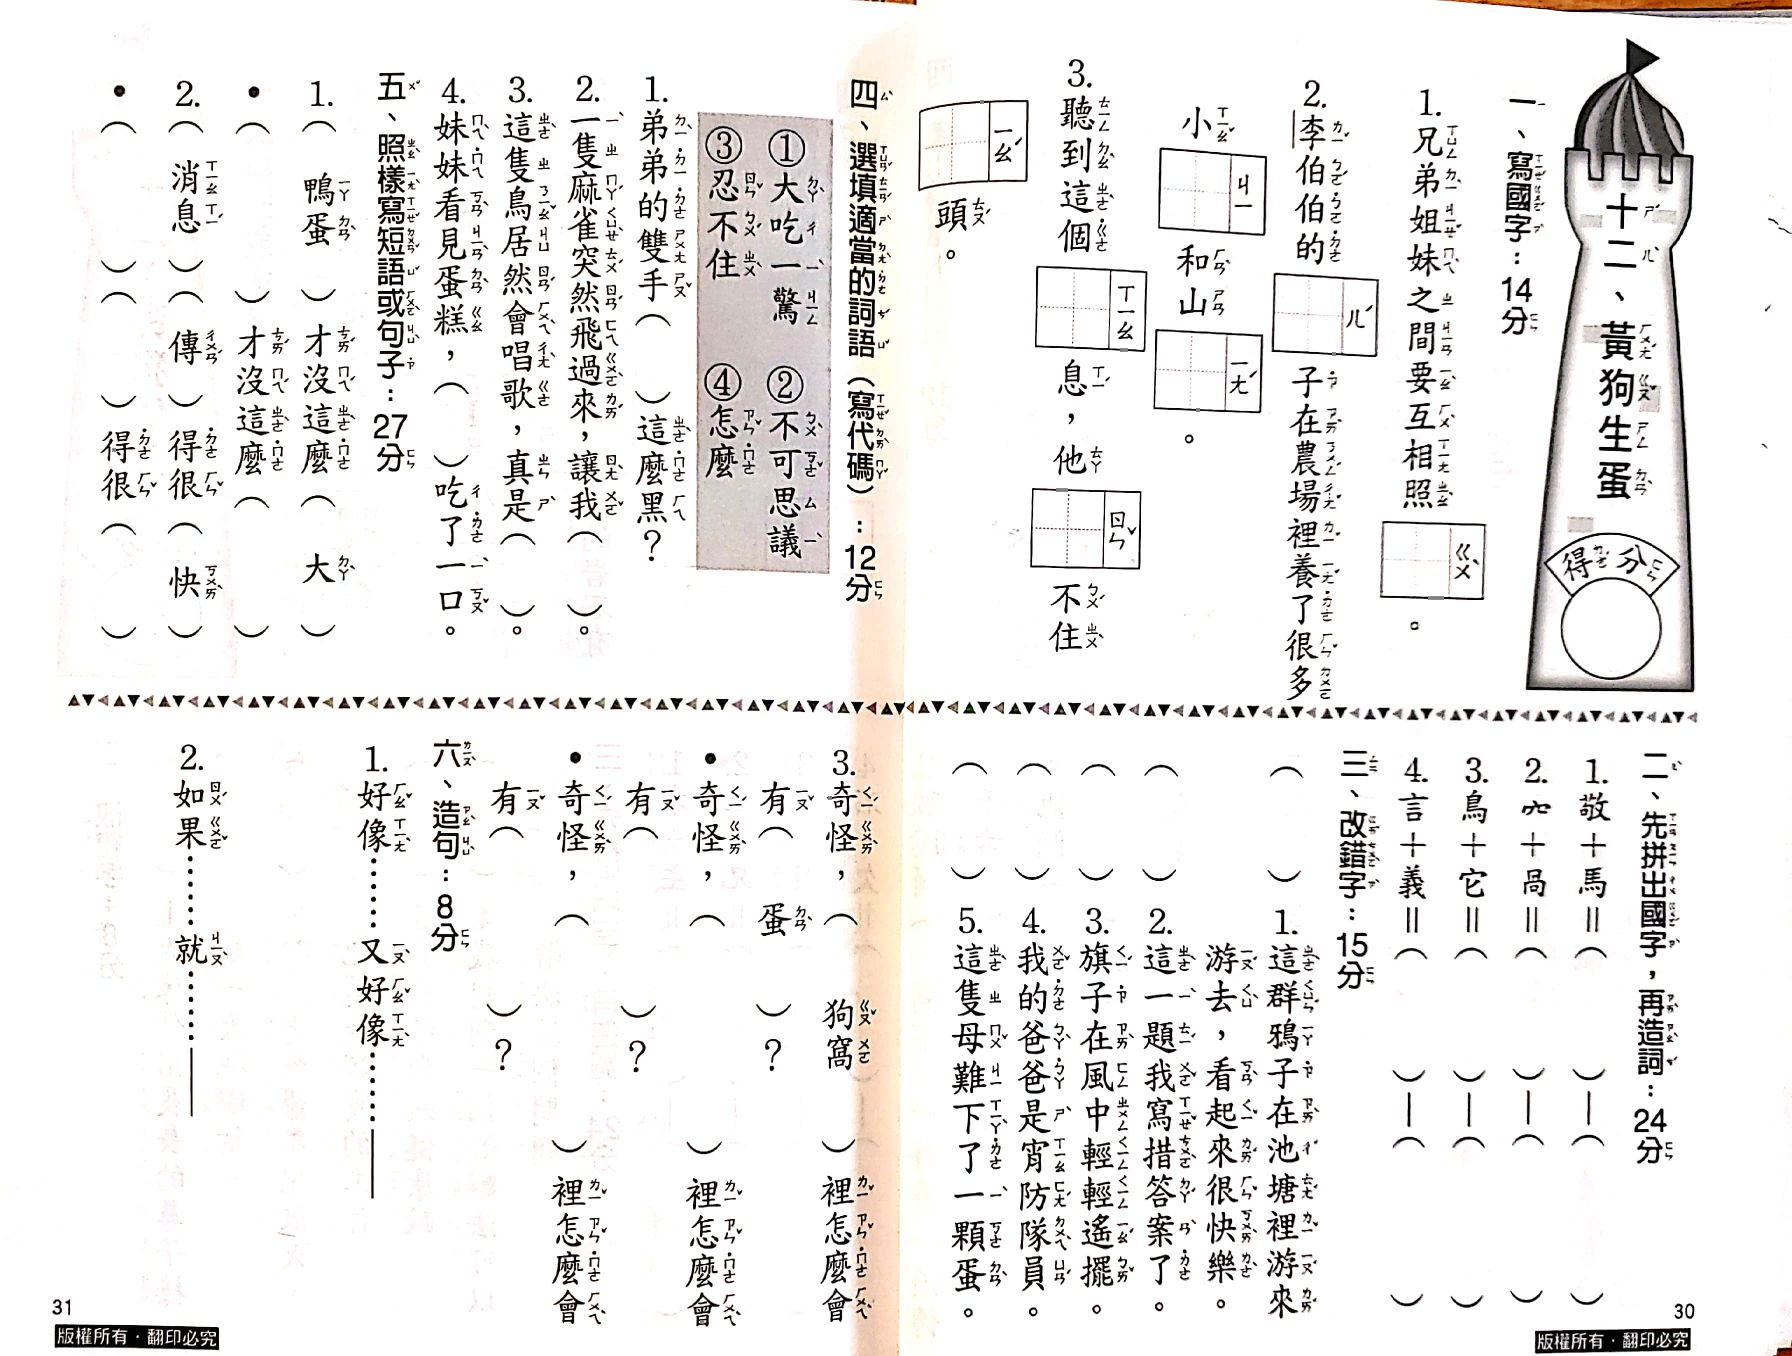 十二、黃狗生蛋
得分
一、寫國字：14分
1.兄弟姐妹之間要互相照ㄍㄨˋ。
2.李伯伯的ㄦˊ子在農場裡養了很多
小ㄐㄧ和山ㄧㄤˊ。
3.聽到這個ㄒㄧㄠ息，他ㄖㄣˇ不住
ㄧㄠˊ頭。
二、先拼出國字，再造詞：24分
1.敬＋馬＝（　）—（　）
2.穴＋咼＝（　）—（　）
3.鳥＋它＝（　）—（　）
4.言＋義＝（　）—（　）
三、改錯字：15分
（　）1.這群鴉子在池塘裡游來
游去，看起來很快樂。
（　）2.這一題我寫措答案了。
（　）3.旗子在風中輕輕遙擺。
（　）4.我的爸爸是宵防隊員。
（　）5.這隻母難下了一顆蛋。
30
版權所有・翻印必究
四、選填適當的詞語（寫代碼）：12分
①大吃一驚　②不可思議
③忍不住　④怎麼
1.弟弟的雙手（　）這麼黑？
2.一隻麻雀突然飛過來，讓我（　）。
3.這隻鳥居然會唱歌，真是（　）。
4.妹妹看見蛋糕，（　）吃了一口。
五、照樣寫短語或句子：27分
1.（鴨蛋）才沒這麼（大）
•（　）才沒這麼（　）
2.（消息）（傳）得很（快）
•（　）（　）得很（　）
3.奇怪，（狗窩）裡怎麼會
有（蛋）？
•奇怪，（　）裡怎麼會
有（　）？
•奇怪，（　）裡怎麼會
有（　）？
六、造句：8分
1.好像……又好像……
2.如果……就……
31
版權所有・翻印必究